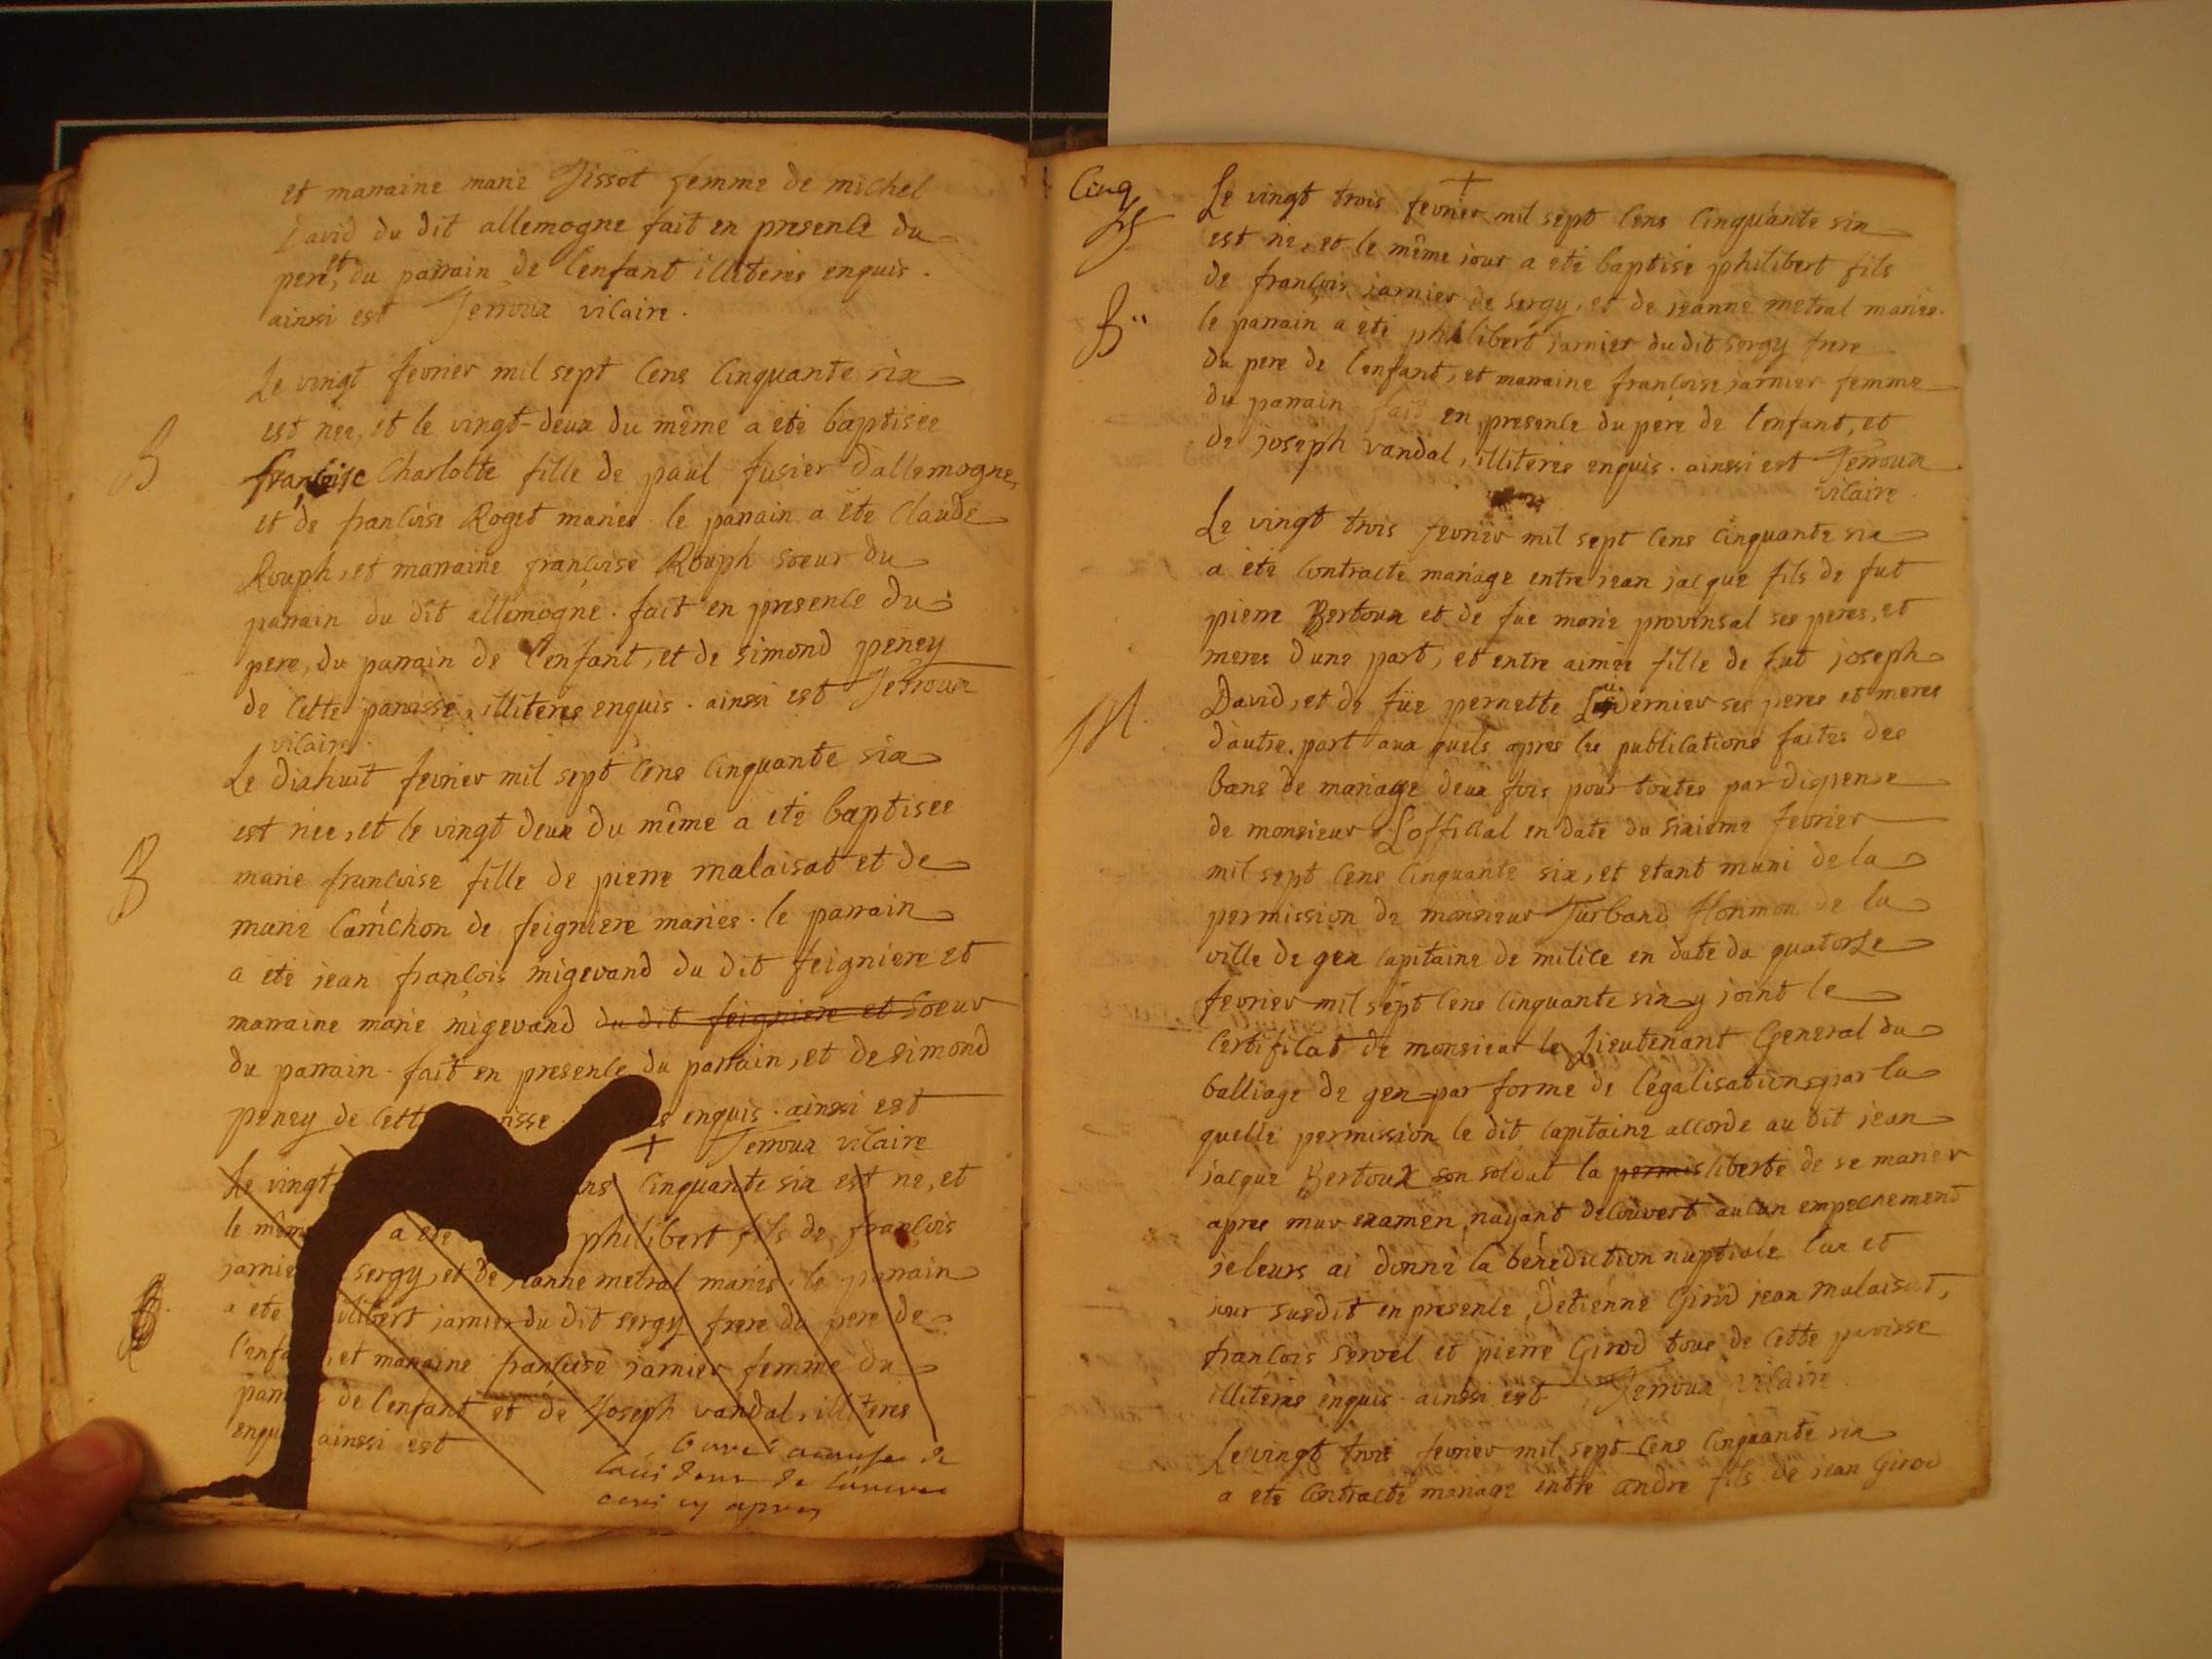 et marraine marie Tissot femme de michel
David du dit allemogne fait en presence du
pere, et du parrain de l'enfant illiteris enquis.
ainssi est Terroux vicaire.
Le vingt fevrier mil sept cens cinquante six
est née, et le vingt-deux du même a eté baptisée
françoise Charlotte fille de paul fusier d'allemogne,
et de françoise Roget mariés. le parrain a été Claude
Rouph, et marraine françoise Rouph soeur du
parrain du dit allemogne. fait en presence du
pere, du parrain de l'enfant, et de simond peney
de cette paroisse, illiterés enquis. ainssi est Terroux
vicaire.
Le dixhuit fevrier mil sept cens cinquante six
est née, et le vingt deux du même a eté baptisée
marie françoise fille de pierre malaisat et de
marie de feigniere mariés. le parrain
a eté jean françois migevand du dit feigniere et
marraine marie migevand du dit feigniere et soeur
du parrain. fait en presence du parrain, et de simond
peney de cett isse. enquis. ainssi est
+ Terroux vicaire
Le vingt ns cinquante six est né, et
le mêm a eté philibert fils de françois
jarnie sergy, et de jeanne metral mariés. le parrain
a eté ilibert jarnier du dit sergy frere du pere de
l'enfa , et marraine françoise jarnier femme du
parr de l'enfant et de Joseph vandal, illiteres
enqu ainssi est
a cause de
l'accident de l'ancre
cy apres
Cinq
+
Le vingt trois fevrier mil sept cens cinquante six
est né, et le même jour a eté baptisé philibert fils
de françois jarnier de sergy, et de jeanne metral mariés.
B
le parrain a eté philibert jarnier du dit sergy frere
du pere de l'enfant, et marraine françoise jarnier femme
du parrain fait en presence du pere de l'enfant, et
de joseph vandal, illiterés enquis. ainssi est Terroux
vicaire.
Le vingt trois fevrier mil sept cens cinquante six
a eté contracté mariage entre jean jacque fils de fut
pierre Bertoux et de fue marie provensal ses peres, et
meres d'une part, et entre aimée fille de fut joseph
M.
David, et de füe pernette dernier ses peres et meres
d'autre part aux quels apres les publications faites des
bans de mariage deux fois pour toutes par dispense
de monsieur L'official en date du sixieme fevrier
mil sept cens cinquante six, et etant muni de la
permission de monsieur Turband florimon de la
ville de gex capitaine de milice en date du quatorse
fevrier mil sept cens cinquante six y joint le
certificat de monsieur le Lieutenant General du
balliage de gex par forme de légalisation, par la
quelle permission le dit capitaine accorde au dit jean
jacque Bertoux son soldat la permis liberté de se marier
apres mur examen, nayant decouvert aucun empechement
je leurs ai donné la bénédiction nuptiale l'an et
jour susdit en presence, d'etienne Girod jean malaisat,
françois servel et pierre Girod tous de cette paroisse
illiteris enquis. ainssi est Terroux vicaire
Le vingt trois fevrier mil sept cens cinquante six
a eté contracté mariage entre andre fils de jean Girod